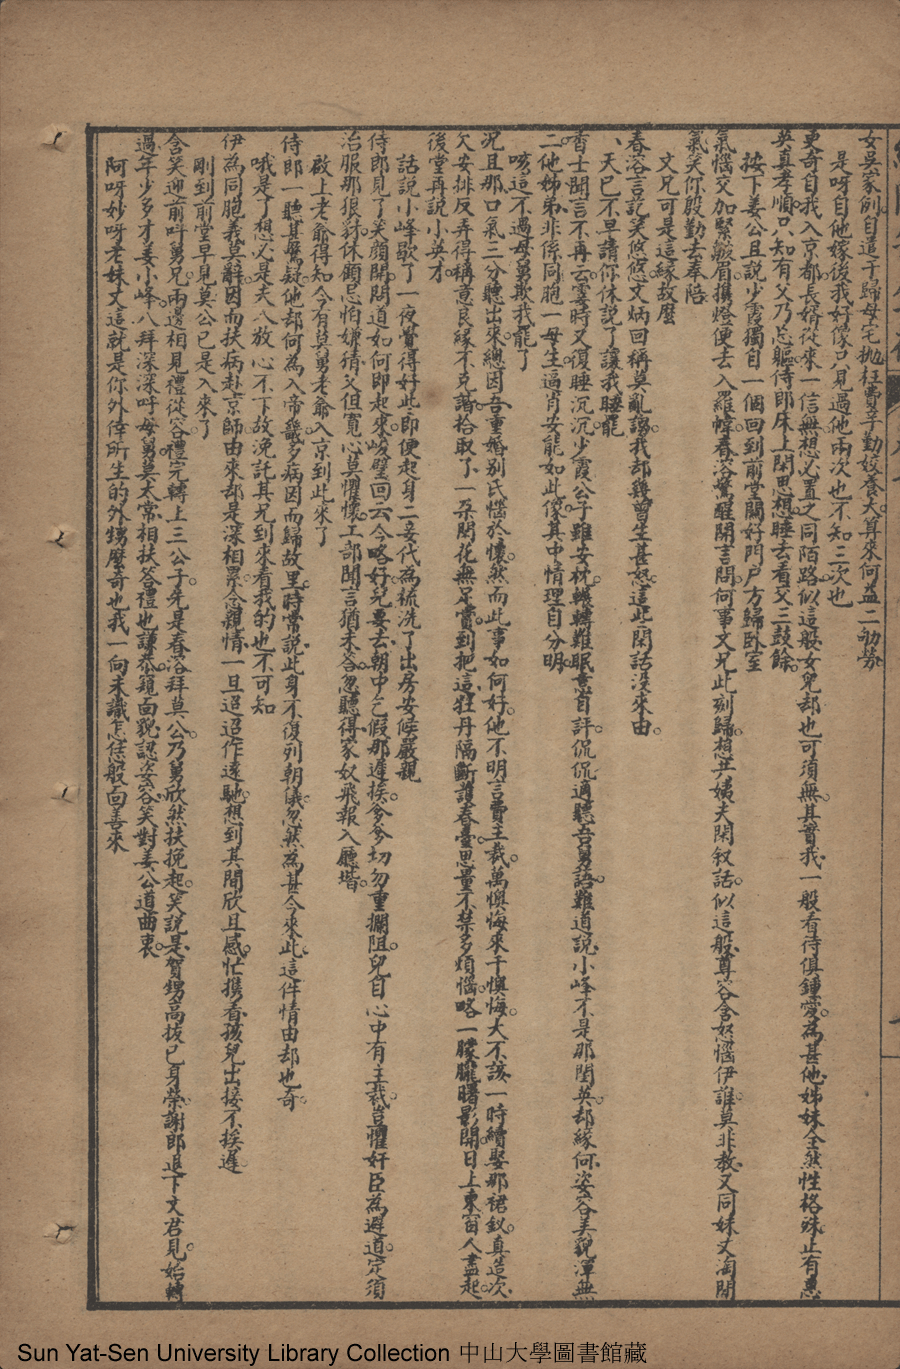 女吳家例自遣于歸母宅拋枉費辛勤姣養大算來何益二劬勞
是呀自他嫁後我好像只見過他兩次也不知三次也
更奇自我入京都長婿從來一信無想必置之同陌路似這般女兒却也可須無其實我一般看待俱鍾愛為甚他姊妹全然性格殊止有惠
英真孝順只知有父乃忘軀侍郎床上閑思想睡去看父三鼓餘
按下姜公且說少霞獨自一個回到前堂關好門戶方歸卧室
氣惱交加緊皺眉携燈便去入羅幃春溶驚醒開言問何事文兄此刻歸想共姨夫閑叙話似這般尊容含怒惱伊誰莫非教又同妹丈淘閑
氣笑你殷勤去奉陪
文兄可是這緣故麼
春溶言訖笑悠悠文炳回稱莫亂謅我却幾曾生甚怒這些閑話沒來由
天已不早請你休說了讓我睡罷
香士聞言不再云霎時又復睡沉沉少霞公子雖安枕輾轉難眠意省評侃侃適聽吾舅語難道說小峰不是那閨英却緣何姿容美貌渾無
二他姊弟非係同胞一母生逼肖安能如此像其中情理自分明
咳這不過母舅欺我罷了
况且那口氣三分聽出來總因吾重婚别氏惱於懷然而此事如何好他不明言費主裁萬懊悔來千懊悔大不該一時續娶那裙釵真造次
欠安排反弄得稱意良緣不克諧拾取了一朵閑花無足賞到把這牡丹隔斷護春臺思量不禁多煩惱略一朦朧曙影開日上東窗人盡起
後堂再說小英才
話說小峰歇了一夜覺得好些即便起身二妾代為梳洗了出房安候嚴親
侍郎見了笑顏開問道如何即起來峻璧回云今略好兒要去朝中乞假那遲挨爹爹切勿重攔阻兒自心中有主裁豈懼奸臣為避道定須
治服那狠豺休顧忌怕嫌猜父但寬心莫懼懷工部聞言猶未答忽聽得家奴飛報入廳堦
啟上老爺得知今有莫舅老爺入京到此來了
侍郎一聽甚驚疑他却何為入帝畿多病因而歸故里時常說此身不復列朝儀忽然為甚今來此這件情由却也奇
哦是了想必是夫人放心不下故浼託其兄到來看我的也不可知
伊為同胞義莫辭因而扶病赴京師由來却是深相累念親情一旦迢迢作遠馳想到其間欣且感忙携着孩兒出接不挨遲
剛到前堂早見莫公已是入來了
含笑迎前叫舅兄兩邊相見禮從容禮完轉上三公子先是春溶拜莫公乃舅欣然扶挽起笑說是賀甥高拔已身榮謝郎退下文君見始轉
過年少多才姜小峰八拜深深呼母舅莫太常相扶答禮也謙恭窺面貌認姿容笑對姜公道曲衷
阿呀妙呀老妹丈這就是你外倖所生的外甥麼奇也我一向未識怎恁般面善來
Sun Yat-Sen University Library Collection 中山大學圖書館藏